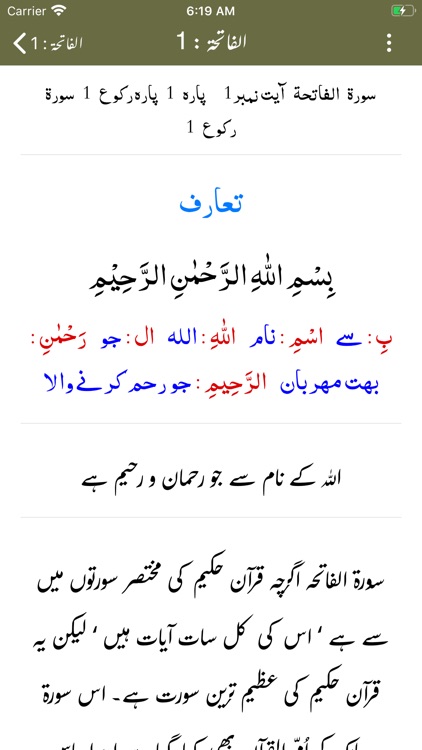 Carrier 6:19 AM
الفاتحۃ : 1
الفاتحۃ : 1
سورۃ الفاتحۃ آیت نمبر 1 پارہ 1 پارہ رکوع 1 سورۃ
رکوع 1
تعارف
بِسْمِ اللّٰهِ الرَّحْمٰنِ الرَّحِيْمِ
بِ : سے اسْمِ : نام اللّٰهِ : اللہ ال : جو رَحْمٰنِ :
بہت مہربان الرَّحِيمِ : جو رحم کرنے والا
اللہ کے نام سے جو رحمان و رحیم ہے
سورۃ الفاتحہ اگرچہ قرآن حکیم کی مختصر سورتوں میں
سے ہے ‘ اس کی کل سات آیات ہیں ‘ لیکن یہ
قرآن حکیم کی عظیم ترین سورت ہے۔ اس سورۃ